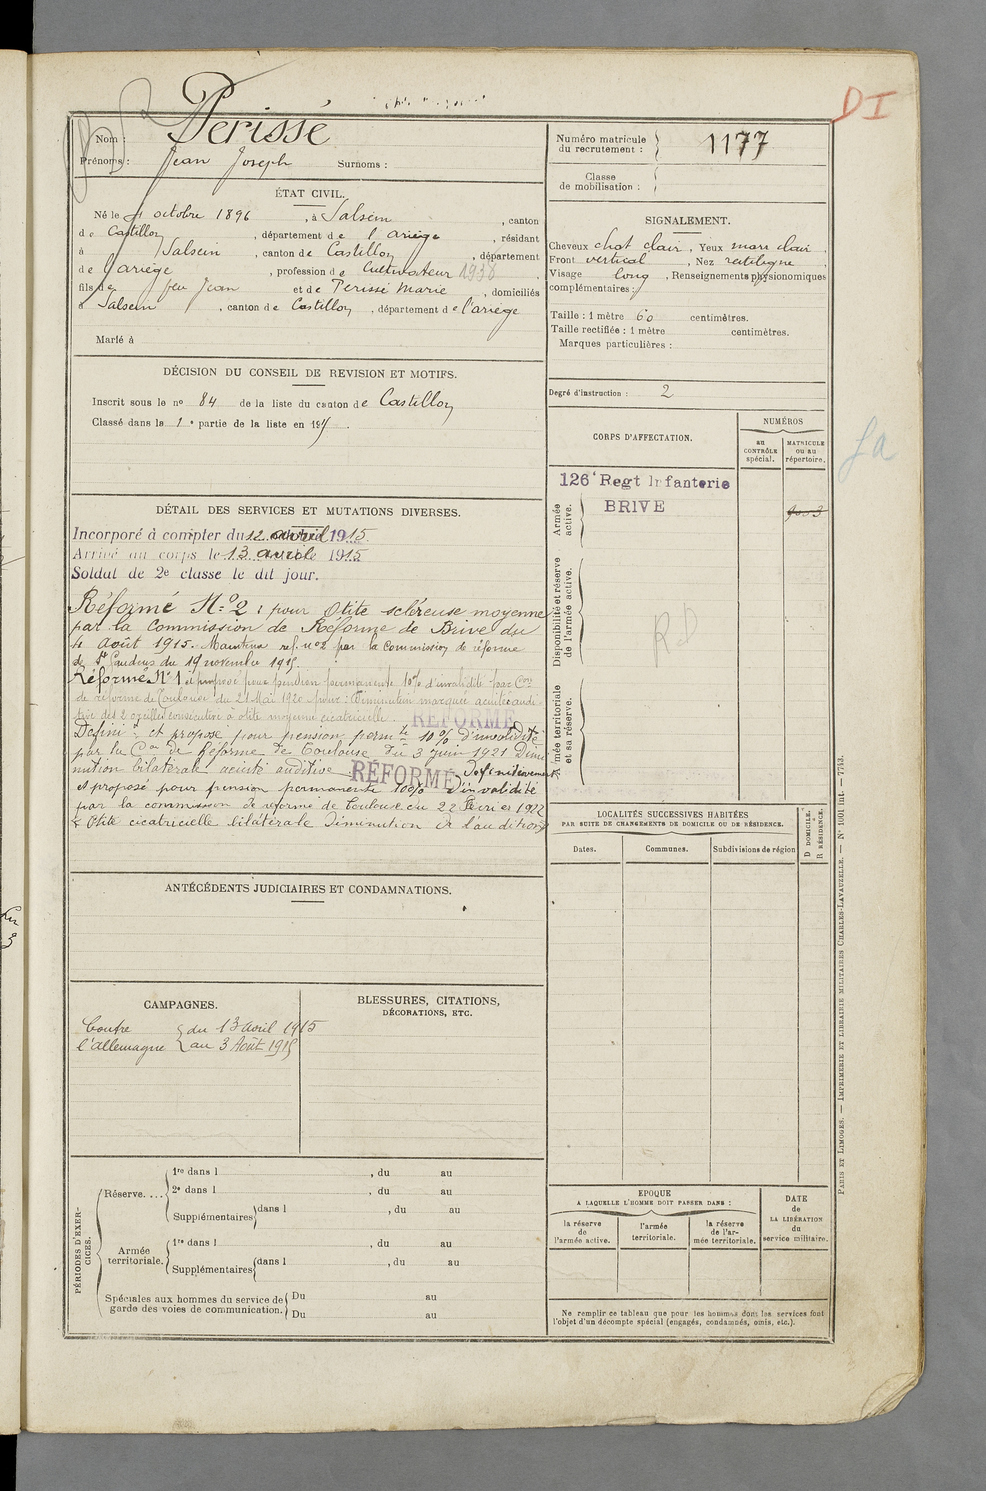 DI
Perissé
Nom :
Prénoms : Jean Joseph Surnoms :
Numéro matricule du recrutement : 1177
Classe de mobilisation :
ÉTAT CIVIL.
Né le octobre 1896, à Salsein, canton
de Castillon, département de l'ariège, résidant
à Salsein, canton de Castillon, département
de l'ariège, profession de Cultivateur 1938,
fils de feu Jean et de Perissé Marie, domiciliés
à Salsein, canton de Castillon, département de l'ariège
Marié à
SIGNALEMENT.
Cheveux chat clair, Yeux mar clair,
Front vertical, Nez rectiligne,
Visage long, Renseignements physionomiques
complémentaires :
Taille : 1 mètre 60 centimètres.
Taille rectifiée : 1 mètre centimètres.
Marques particulières :
DÉCISION DU CONSEIL DE REVISION ET MOTIFS.
Inscrit sous le no 84 de la liste du canton de Castillon
Classé dans la 1e partie de la liste en 191
Degré d'instruction : 2
CORPS D'AFFECTATION.
NUMÉROS
au CONTRÔLE spécial.
MATRICULE ou au répertoire.
126e Regt Infanterie
BRIVE
Armée active.
Disponibilité et réserve de l'armée active.
Armée territoriale et sa réserve.
DÉTAIL DES SERVICES ET MUTATIONS DIVERSES.
Incorporé à compter du 12 avril 1915.
Arrivé au corps le 13 avril 1915
Soldat de 2e classe le dit jour.
Réformé No 2 : pour Otite scléreuse moyenne
par la Commission de Réforme de Brive du
4 Août 1915. Maintenu ref. no 2 par la Commission de réforme
de St Gaudens du 19 novembre 1915.
Réformé No 1 et proposé pour pension permanente 10% d'invalidité par Con
de réforme de Toulouse du 21 Mai 1920 pour : Diminution marquée acuité audi-
tive des 2 oreilles consécutive à otite moyenne cicatricielle.
RÉFORMÉ
Définit et proposé pour pension permte 10% d'invalidité
par la Con de Réforme de Toulouse du 3 juin 1921 Dimi
nution bilatérale acuité auditive.
RÉFORMÉ Définitivement
et proposé pour pension permanente 10% d'invalidité
par la commission de réforme de Toulouse du 22 Février 1922
Otite cicatricielle bilatérale Diminution de l'audition
LOCALITÉS SUCCESSIVES HABITÉES
PAR SUITE DE CHANGEMENTS DE DOMICILE OU DE RÉSIDENCE.
Dates. Communes. Subdivisions de région
D DOMICILE. R RÉSIDENCE.
ANTÉCÉDENTS JUDICIAIRES ET CONDAMNATIONS.
CAMPAGNES.
Contre du 13 avril 1915
l'Allemagne au 3 Août 1915
BLESSURES, CITATIONS,
DÉCORATIONS, ETC.
PÉRIODES D'EXERCICES.
Réserve....
1re dans l , du au
2e dans l , du au
Supplémentaires dans l , du au
Armée territoriale.
1re dans l , du au
Supplémentaires dans l , du au
Spéciales aux hommes du service de garde des voies de communication.
Du au
Du au
EPOQUE
A LAQUELLE L'HOMME DOIT PASSER DANS :
la réserve de l'armée active.
l'armée territoriale.
la réserve de l'armée territoriale.
DATE de LA LIBÉRATION du service militaire.
Ne remplir ce tableau que pour les hommes dont les services font
l'objet d'un décompte spécial (engagés, condamnés, omis, etc.).
PARIS ET LIMOGES. — IMPRIMERIE ET LIBRAIRIE MILITAIRES CHARLES-LAVAUZELLE. — No 1001 int. — 7713.